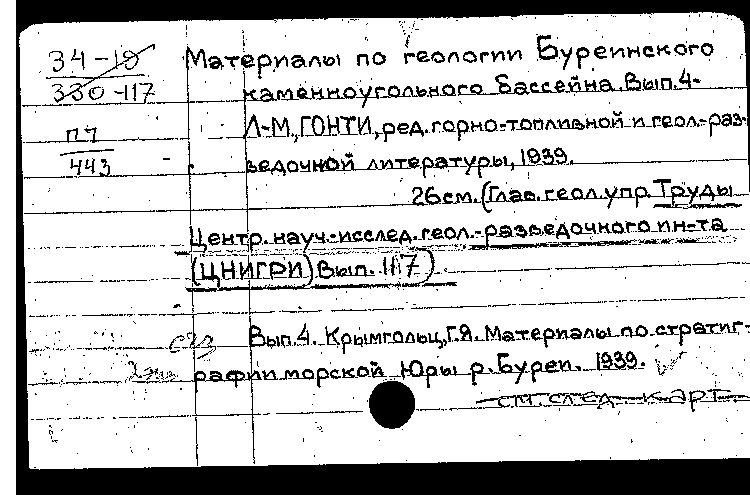 34-10 Материалы по геологии Буреинского
330-117 каменноугольного бассейна. Вып.4-
П4 Л-М, ГОНТИ, ред. горно-топливной и геол.-раз-
443 ведочной литературы, 1939.
26см. (Глав. геол. упр. Труды
Центр. науч.-исслед. геол.-разведочного ин-та
(ЦНИГРИ) Вып. 117)
Вып. 4. Крымгольц, Г.Я. Материалы по стратиг-
рафии морской Юры р. Буреи. 1939.
см. след. карт.